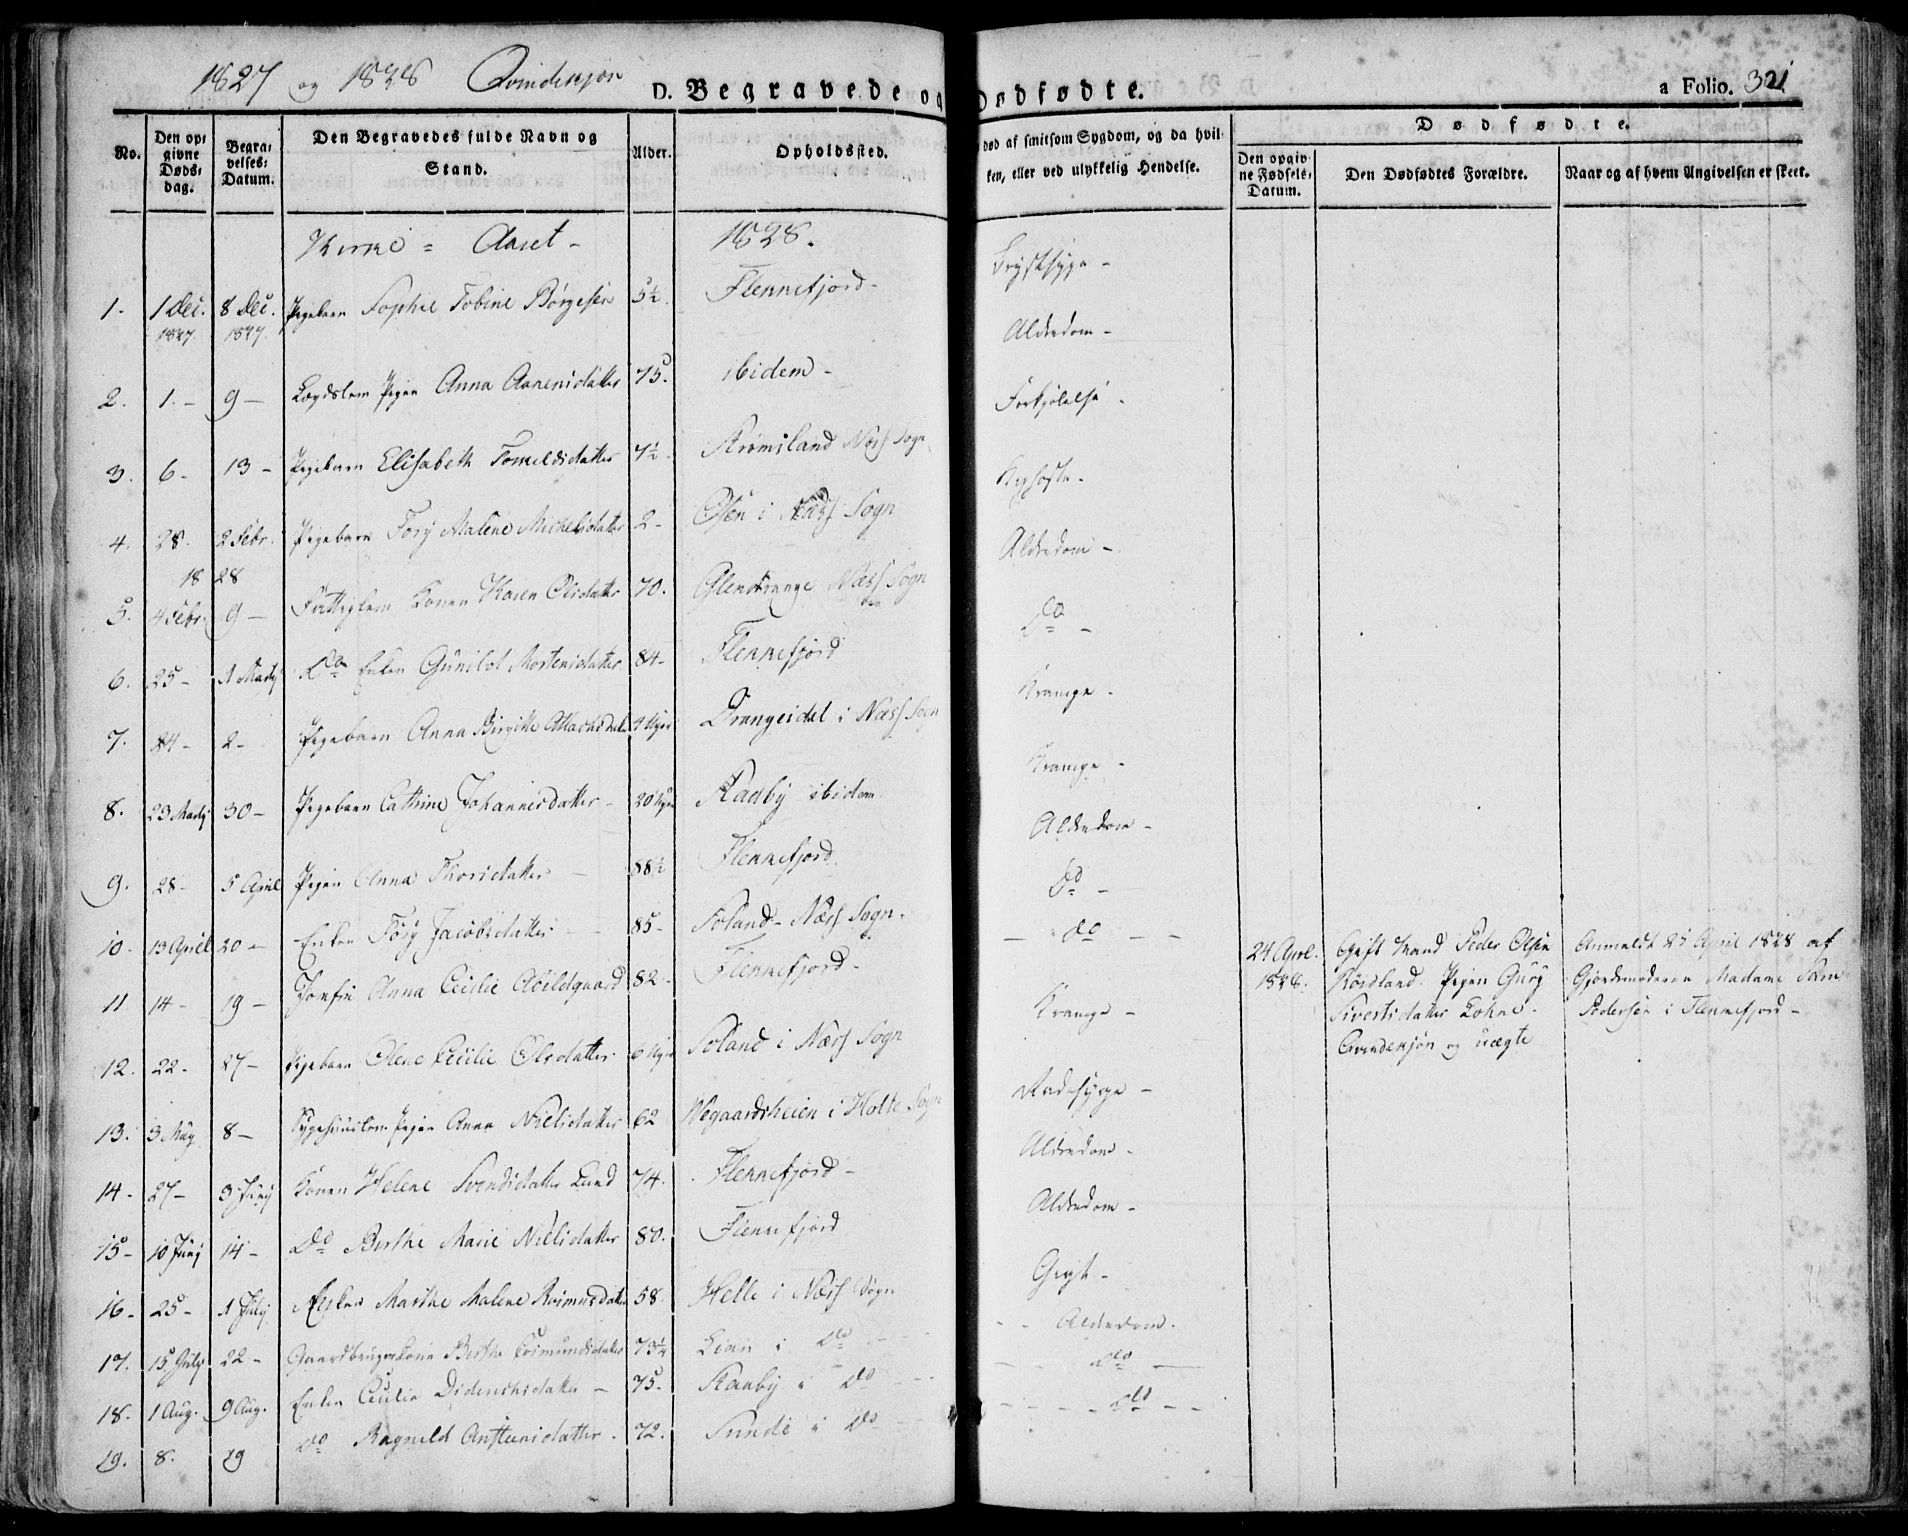 1827 og 1828 Qvindekjøn
D. Begravede og Dødfødte.
a Folio. 321
No.
Den opgivne Dødsdag.
Begravelses: Datum.
Den Begravedes fulde Navn og Stand.
Alder.
Opholdssted.
død af smitsom Sygdom, og da hvilken, eller ved ulykkelig Hendelse.
Dødfødte.
Den opgivne Fødsels: Datum.
Den Dødfødtes Forældre.
Naar og af hvem Angivelsen er skeet.
Kirke = Aaret - 1828.
1. 1 Dec. 1827 8 Dec. 1827. Pigebarn Sophie Tobine Børgesen 5½. Flekkefjord - Brystsyge -
2. 1. - 9 - Lægdslem Pigen Anna Aanensdatter 75. ibidem - Alderdom -
3. 6 - 13 - Pigebarn Elisabeth Torkeldsdatter 7½ Strømsland Næss Sogn Forkjølelse -
4. 28. 2 Febr. Pigebarn Torj Malene Michelsdatter 2 - Osen i Næss Sogn Kighoste.
1828
5. 4 Febr. 9 - Fattiglem Konen Karen Olsdatter 70. Glendrange Næss Sogn Alderdom -
6. 25 - 1 Martj Do Enken Gunild Mortensdatter 84 - Flekkefjord Do -
7. 24 - 2 - Pigebarn Anna Birgitte 4 Uger Drangeidal i Næss Sogn Krampe -
8. 23 Martj 30 - Pigebarn Cathrine Johannesdatter - 20 Uger Raaby ibidem Krampe -
9. 28 - 5 April Pigen Anna Thorsdatter - 88½ Flekkefjord. Alderdom -
10. 13 April 20 - Enken Torj Jacobsdatter - 85 - Soland - Næss Sogn. Do -
11. 14 - 19 - Jomfru Anna Cecilie Abildgaard 82 - Flekkefjord - Do -
12. 22 - 27 - Pigebarn Olene Cecilie Olsdatter 6 Uger Soland i Næss Sogn Krampe -
13. 3 Maj 8 - Sygehuuslem Pigen Anna Nielsdatter 62 Vegaardsheien i Holte Sogn Radesyge -
14 - 27 - 3 Junj Konen Helene Svendsdatter Lund 74. Flekkefjord - Alderdom -
15 - 10 Junj 14 - Do Berthe Marie Nielsdatter 80. Flekkefjord Alderdom -
16 - 25 - 1 Julj Enken Marthe Malene Rasmusdatter 58. Helle i Næss Sogn Gigt -
17. 15 Julj 22 - Gaardbrugerkone Berthe Osmundsdatter 73¼ Lian i Do - Alderdom.
18. 1 Aug. 9 Aug. Enken Cecilie Didrichsdatter - 75. Raaby i Do - Do -
19. 8. 19 Do Ragnild Austeensdatter. 72. Sunde i Do - Do -
24 Aprl. 1828.
Gift Mand Peder Olsen
Røisland. Pigen Gurj
Sivertsdatter Lohne -
Qvindekjøn og uægte
Anmeldt 27 April 1828 af
Gjordemoderen Madame
Pedersen i Flekkefjord -